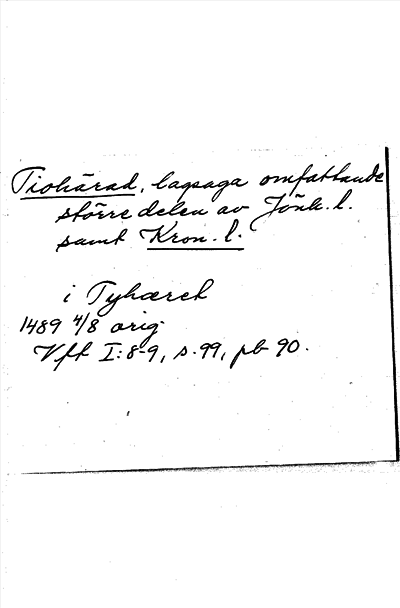 Tiohärad, lagsaga omfattande
större delen av Jönk. l.
samt Kron. l.
i Tyhæret
1489 4/8 orig.
Vft I:8-9, s. 99, pb 90.